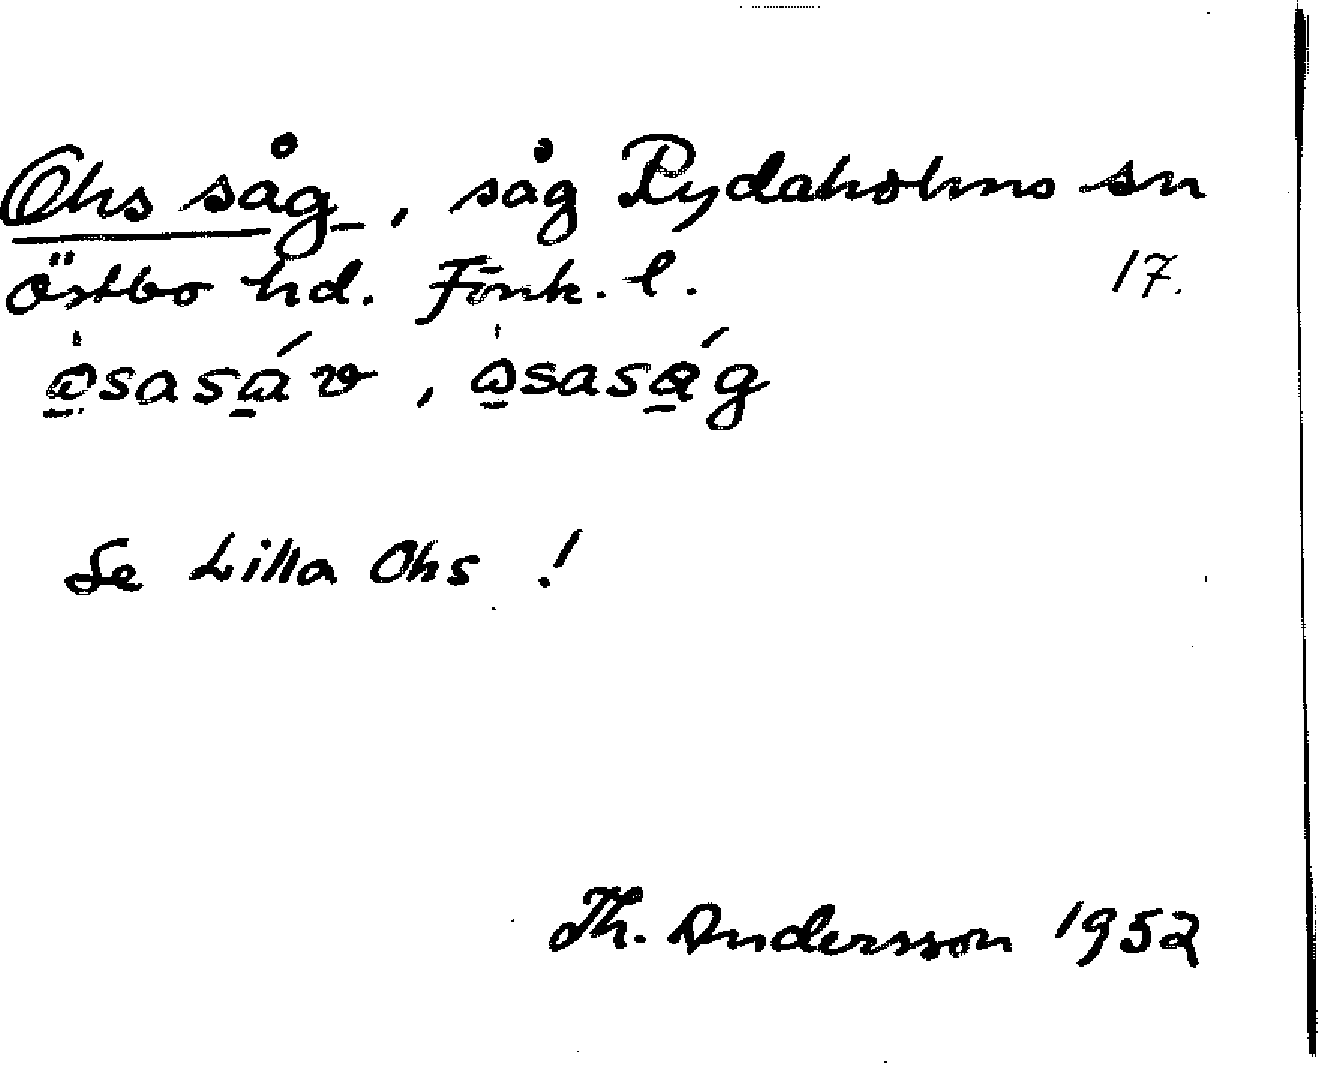 Ohs såg, såg Rydaholms sn
Östbo hd. Jönk. l. 17.
Se Lilla Ohs !
Th. Andersson 1952